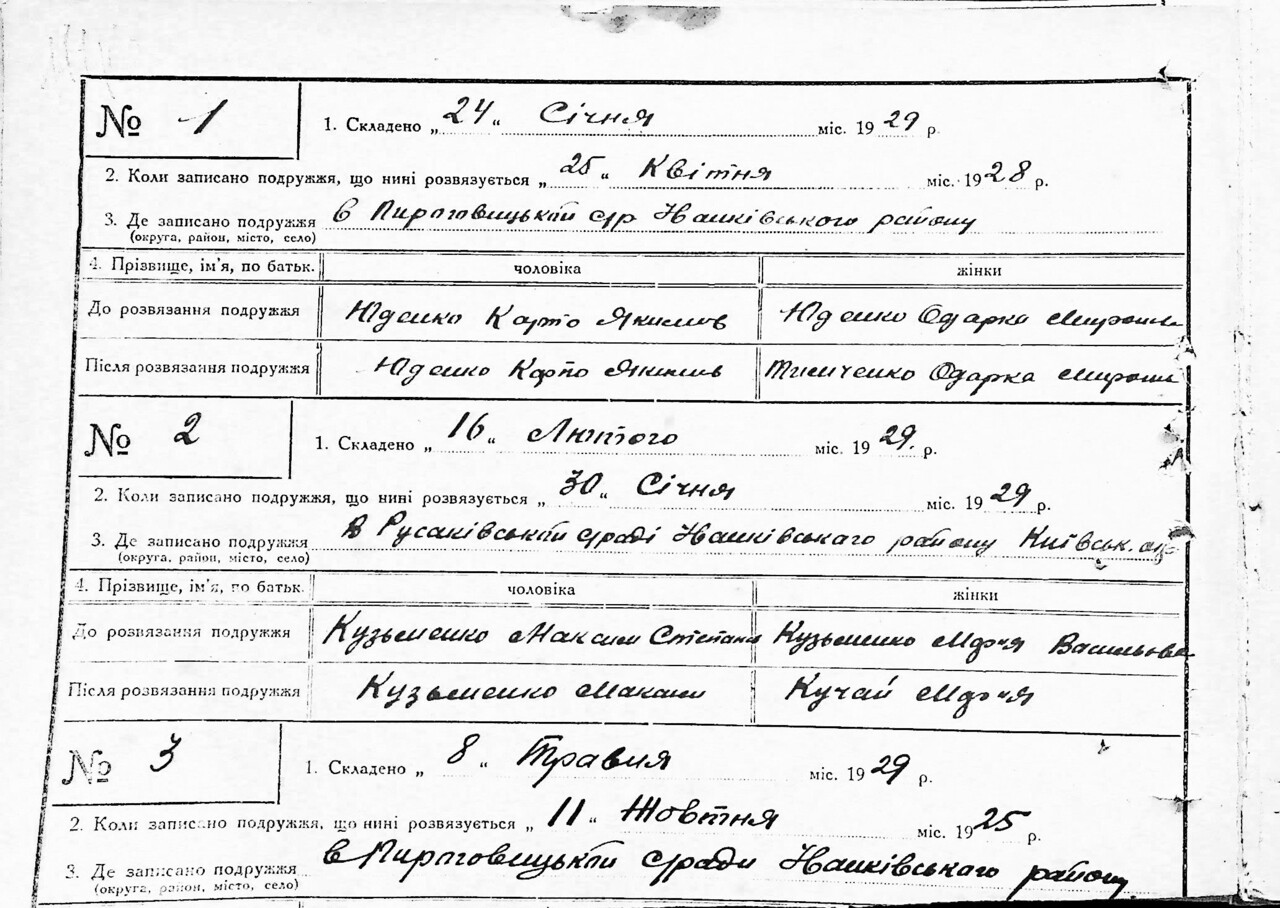 № 1
1. Складено „ 24 “ Січня міс. 19 29 р.
2. Коли записано подружжя, що нині розвязується „ 25 “ Квітня міс. 19 28 р.
3. Де записано подружжя в Пироговицькій с/р Іванківського району
(округа, район, місто, село)
4. Прізвище, ім’я, по батьк. чоловіка жінки
До розвязання подружжя Юденко Карпо Якимов Юденко Одарка Мирони
Після розвязання подружжя Юденко Карпо Якимів Тимченко Одарка Мирони
№ 2
1. Складено „ 16 “ Лютого міс. 19 29. р.
2. Коли записано подружжя, що нині розвязується „ 30 “ Січня міс. 19 29 р.
3. Де записано подружжя в Русаківській с/раді Іванківського району Київськ.
(округа, район, місто, село)
4. Прізвище, ім’я, по батьк. чоловіка жінки
До розвязання подружжя Кузьменко Максим Степани Кузьменко Марія Васильова
Після розвязання подружжя Кузьменко Максим Кучай Марія
№ 3
1. Складено „ 8 “ Травня міс. 19 29 р.
2. Коли записано подружжя, що нині розвязується „ 11 “ Жовтня міс. 19 25 р.
3. Де записано подружжя в Пироговицькій с/ради Іванківського району
(округа, район, місто, село)